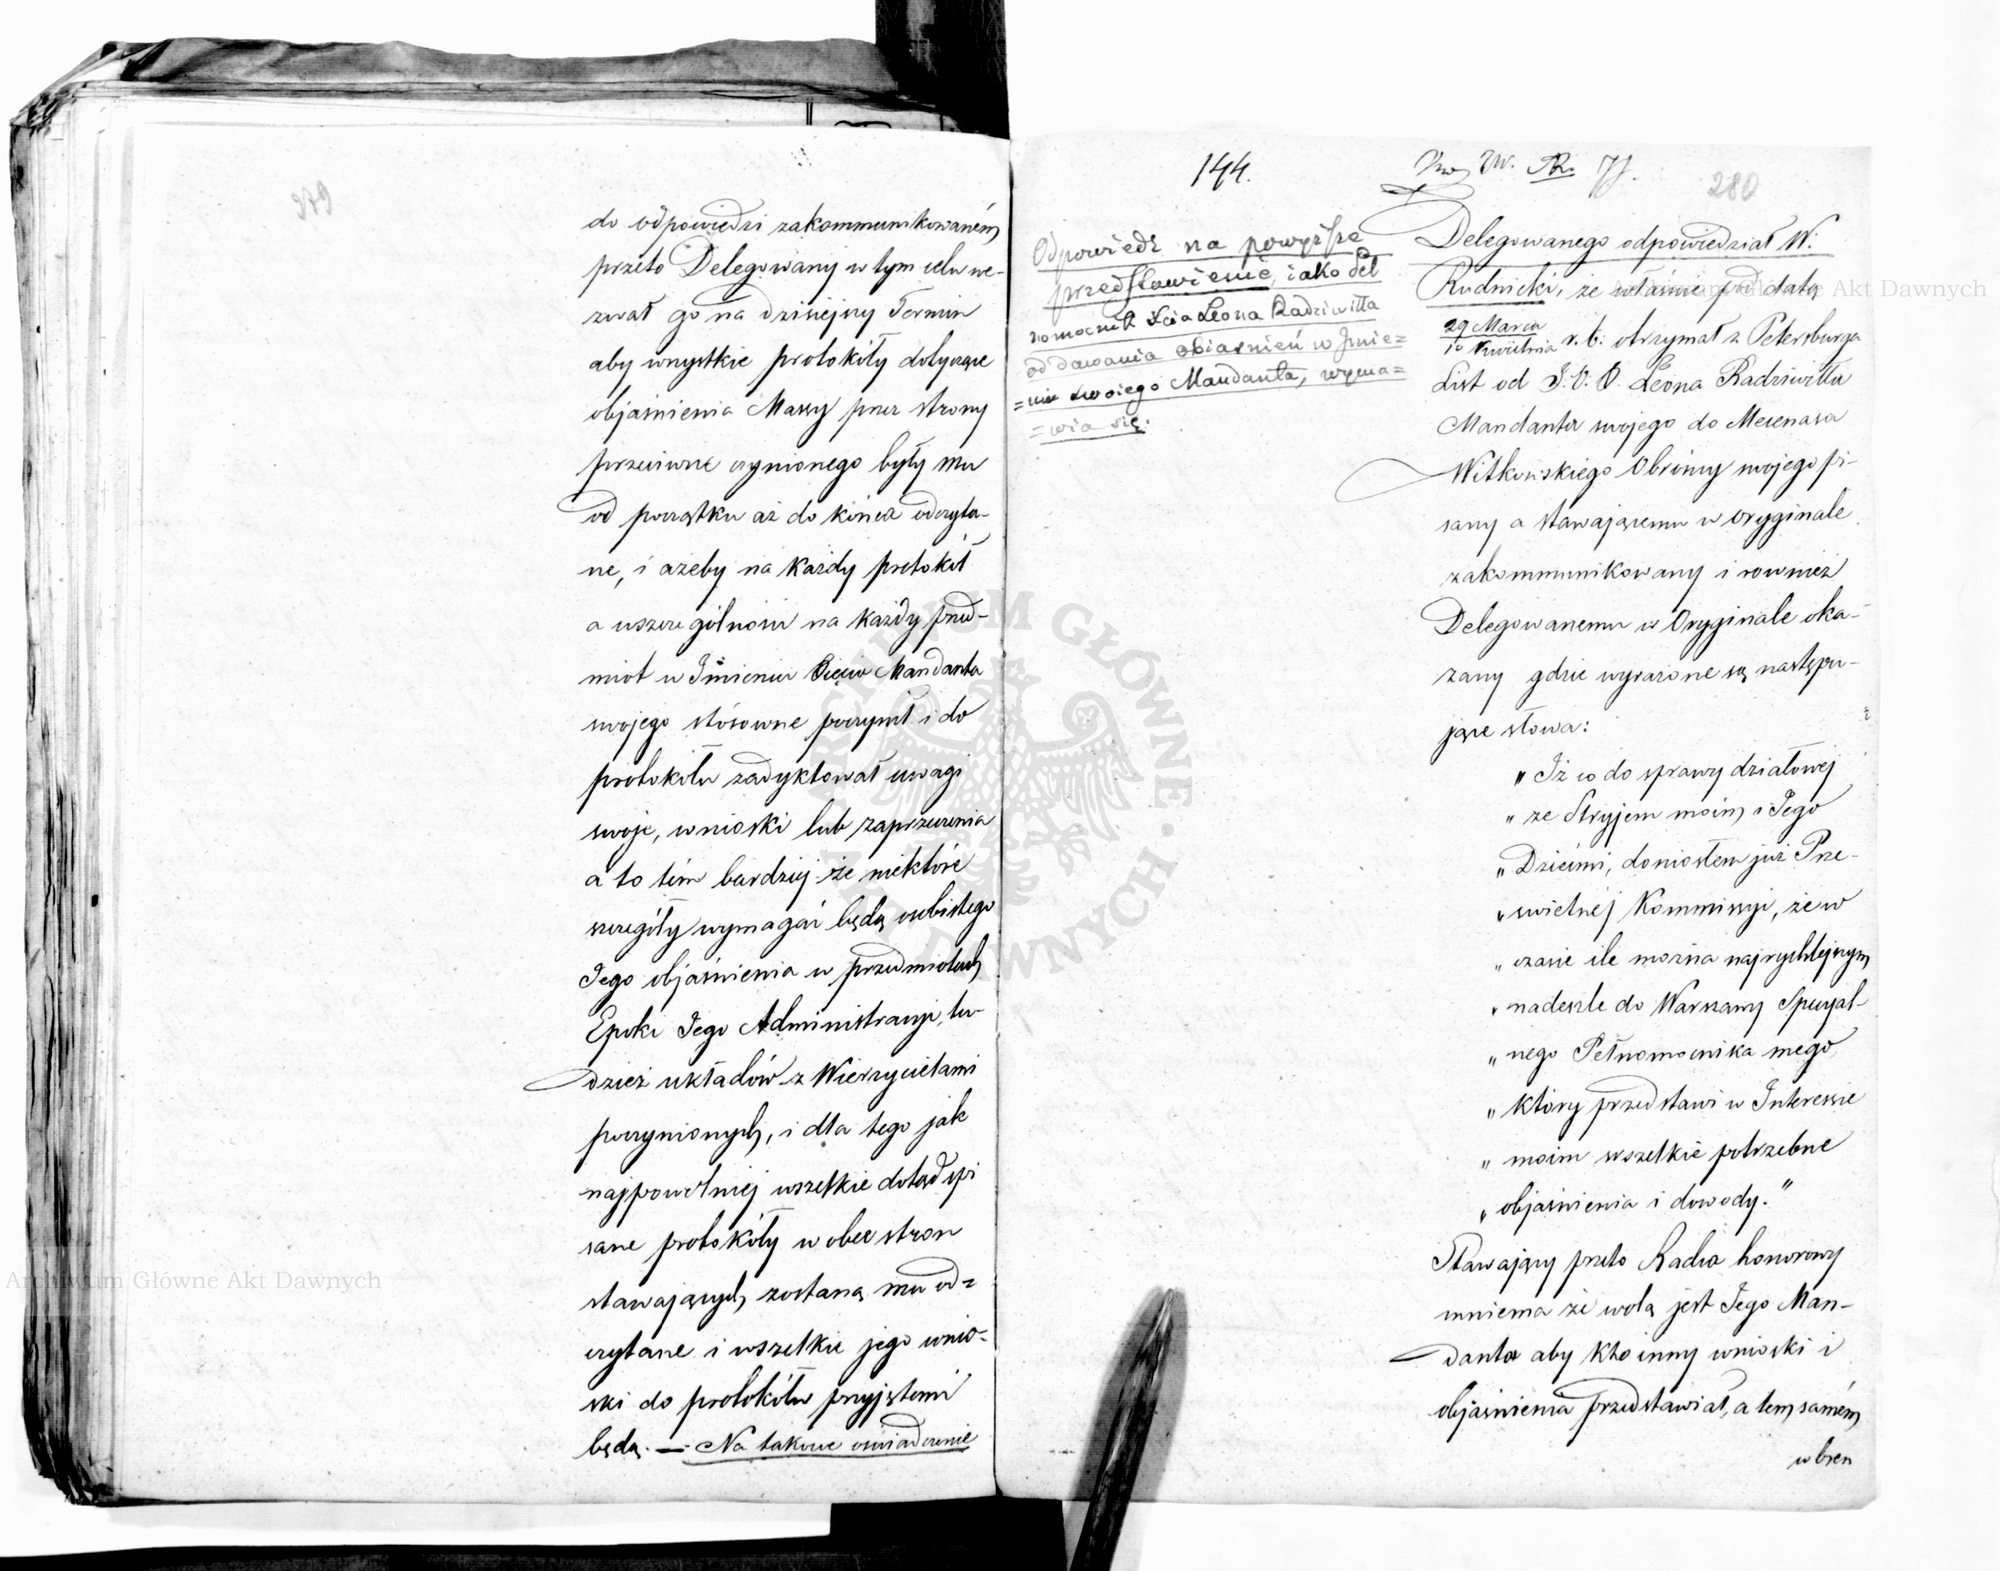 do odpowiedzi zakommunikowaném
przeto Delegowany w tym celu we-
zwał go na dzisiejszy Termin
aby wszystkie protokóły dotyczące
objaśnienia Massy przez strony
przeciwne czynionego były mu
od początku aż do końca odczyta-
ne, i ażeby na każdy protokół
a szczególności na każdy przed-
miot w Imieniu Xięcia Mandanta
swojego stósowne poczynił i do
protokółu zadyktował uwagi
swoje, wnioski lub zaprzeczenia
a to tém bardziej że niektóre
szczegóły wymagać będą osobistego
Jego objaśnienia w przedmiotach
Epoki Jego Administracyi, tu-
dzież układów z Wierzycielami
poczynionych, i dla tego jak
najpowolniej wszelkie dotąd spi
sane protokóły wobec stron
stawających zostaną mu od=
czytane i wszelkie jego wnio-
ski do protokółu przyjętemi
będą. — Na takowe oświadczenie
144.
280
Odpowiedź na powyższe
przedstawienie, iako Peł
nomocnik Xcia Leona Radziwiłła
od dawania obiaśnień w Jmie=
=niu swoiego Mandanta, wyma=
=wia się.
Delegowanego odpowiedział W:
Rudnicki, że właśnie pod datą
29 Marca
10 Kwietnia r. b. otrzymał z Petersburga
List od J. O. X. Leona Radziwiłła
Mandanta swojego do Mecenasa
Witkowskiego Obrońcy swojego pi-
sany a stawającemu w oryginale
zakommunikowany i rownież
Delegowanemu w Oryginale oka-
zany gdzie wyrażone są następu-
jące słowa:
„ Iż co do sprawy działowej
„ ze Stryjem moim i Jego
„ Dziećmi, doniosłem już Prze-
„ świetnéj Kommissyi, że w
„ czasie ile można najrychlejszym
„ nadeszle do Warszawy Specyal-
„ nego Pełnomocnika mego
„ który przedstawi w Interessie
„ moim wszelkie potrzebne
„ objaśnienia i dowody.”
Stawający przeto Radca honorowy
mniema że wolą jest Jego Man-
danta aby kto inny wnioski i
objaśnienia przedstawiał, a tem samém
wbrew
Archiwum Główne Akt Dawnych
Archiwum Główne Akt Dawnych
ARCHIWUM GŁÓWNE AKT DAWNYCH